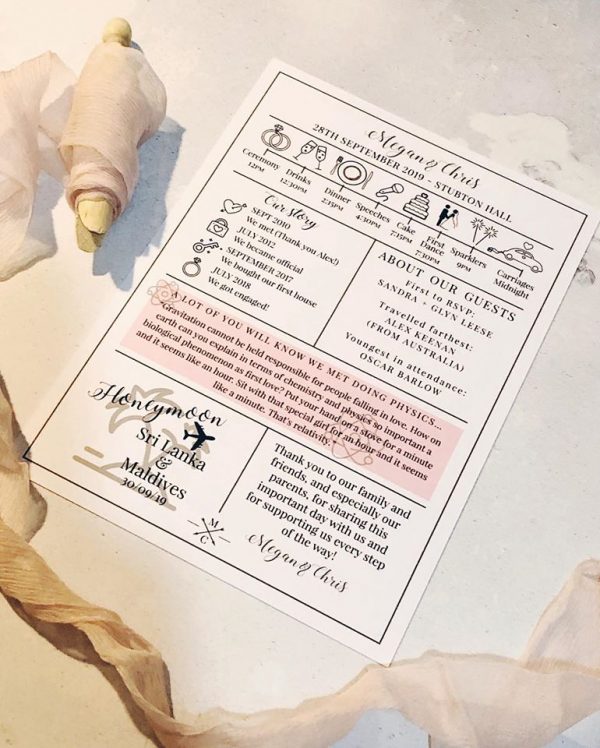 Megan & Chris
28TH SEPTEMBER 2019 - STUBTON HALL
Ceremony
12PM
Drinks
12:30PM
Dinner
2:15PM
Speeches
4:30PM
Cake
7:15PM
First
Dance
7:30PM
Sparklers
9PM
Carriages
Midnight
Our story
SEPT 2010
We met (Thank you Alex!)
JULY 2012
We became official
SEPTEMBER 2017
We bought our first house
JULY 2018
We got engaged!
ABOUT OUR GUESTS
First to RSVP:
SANDRA + GLYN LEESE
Travelled farthest:
ALEX KEENAN
(FROM AUSTRALIA)
Youngest in attendance:
OSCAR BARLOW
A LOT OF YOU WILL KNOW WE MET DOING PHYSICS...
Gravitation cannot be held responsible for people falling in love. How on
earth can you explain in terms of chemistry and physics so important a
biological phenomenon as first love? Put your hand on a stove for a minute
and it seems like an hour. Sit with that special girl for an hour and it seems
like a minute. That's relativity.
Honeymoon
Sri Lanka
&
Maldives
30/09/19
Thank you to our family and
friends, and especially our
parents, for sharing this
important day with us and
for supporting us every step
of the way!
Megan & Chris
M
C